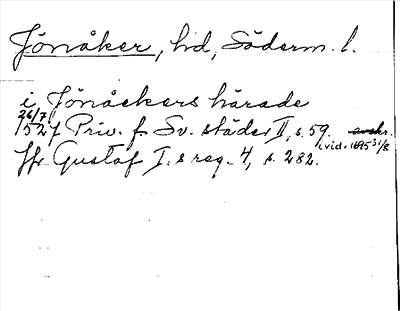 Jönåker, hd, Söderm. l.
i Jönåckers härade
26/7
1527 Priv. f. Sv. städer II, s. 59. avskr.
i vid. 1695 31/8
Jfr Gustaf I:s reg. 4, s. 282.